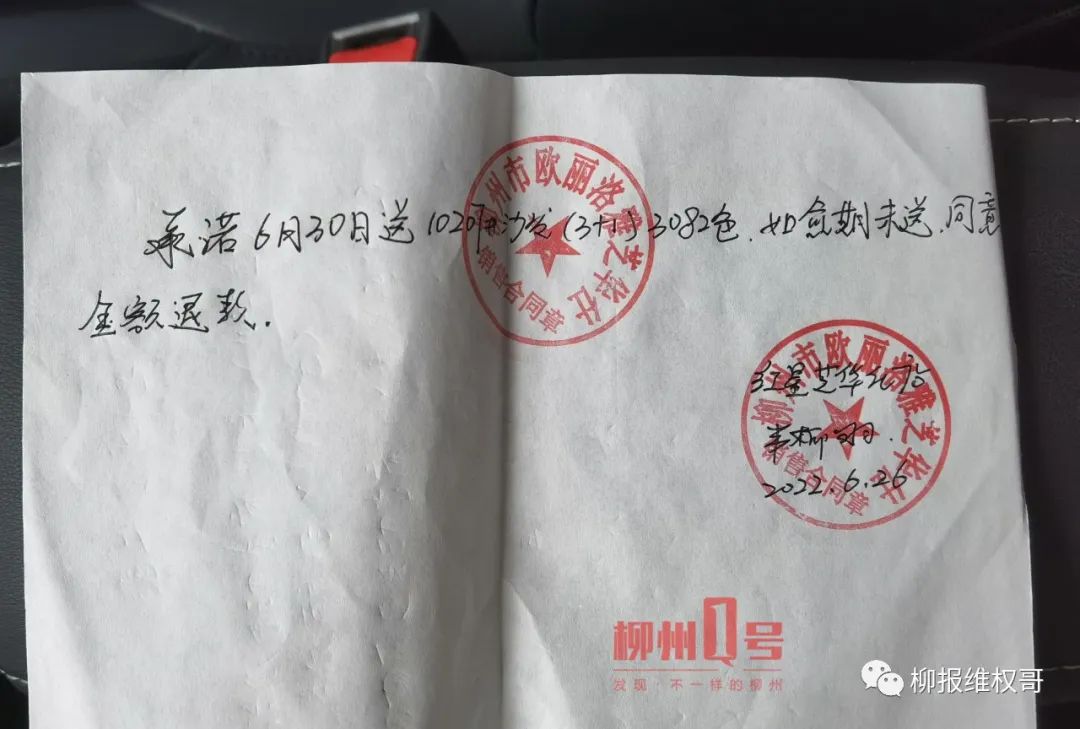 承诺6月30日送1020#沙发(3+1)3082色.如愈期未送.同意
全额退款.
柳州市欧丽洛雅芝华仕
销售合同章
红星芝华仕店
柳
2022.6.26
柳州市欧丽洛雅芝华仕
销售合同章
柳州Q号
发现·不一样的柳州
柳报维权哥